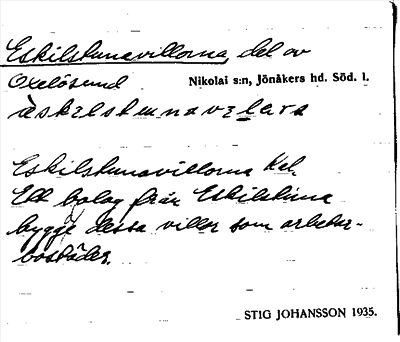 Eskilstunavillorna, del av
Oxelösund Nikolai s:n, Jönåkers hd. Söd. l.
Eskilstunavillorna
Ett bolag från Eskilstuna
byggde dessa villor som arbetar-
bostäder.
STIG JOHANSSON 1935.